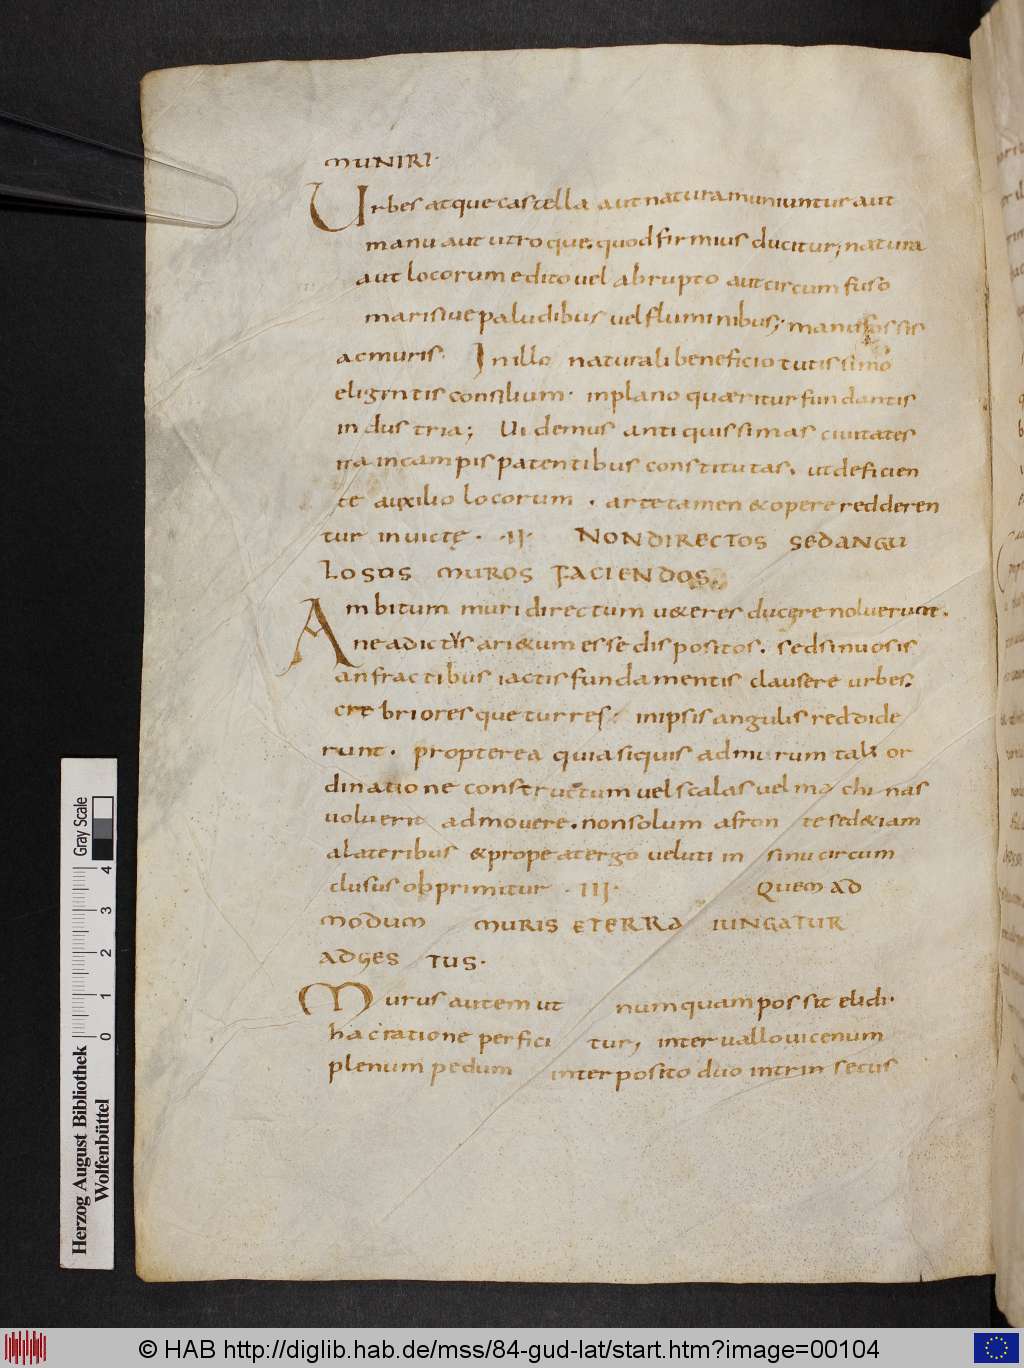 MUNIRI·
Urbes atque castella aut natura muniuntur aut
manu aut utroque. quod firmius ducitur; natura
aut locorum edito vel abrupto aut circumfuso
mari sive paludibus vel fluminibus; manu fossis
ac muris· In illo naturali beneficio tutissimo
eligentis consilium· in plano quæritur fundantis
industria; Videmus antiquissimas civitates
ita in campis patentibus constitutas. ut deficien
te auxilio locorum . arte tamen & opere redderen
tur invictę . ·II· NON DIRECTOS SED ANGU
LOSOS MUROS FACIENDOS.
Ambitum muri directum veteres ducere noluerunt.
ne ad ictus arietum esset dispositos. sed sinuosis
anfractibus iactis fundamentis clausere urbes.
crebrioresque turres· in ipsis angulis reddide
runt. propterea quia si quis ad murum tali or
dinatione constructum vel scalas vel machinas
voluerit admovere. non solum a fronte sed &iam
a lateribus & prope a tergo veluti in sinu circum
clusus obprimitur ·III· QUEM AD
MODUM MURIS E TERRA IUNGATUR
ADGESTUS·
Murus autem ut numquam possit elidi·
hac ratione perficitur, intervallo vicenum
plenum pedum interposito duo intrinsecus
Gray Scale
4 3 2 1 0
Herzog August Bibliothek
Wolfenbüttel
© HAB http://diglib.hab.de/mss/84-gud-lat/start.htm?image=00104